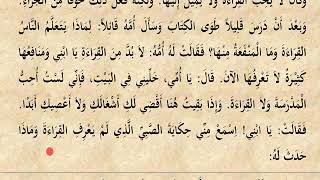 وَكَانَ لَا يُحِبُّ القِرَاءَةَ وَلَا يَمِيلُ إِلَيْهَا. وَلَكِنَّهُ فَعَلَ ذَلِكَ خَوْفًا مِنَ الجَزَاءِ.
وَبَعْدَ أَنْ دَرَسَ قَلِيلاً طَوَى الكِتَابَ وَسَأَلَ أُمَّهُ قَائِلاً: لِمَاذَا يَتَعَلَّمُ النَّاسُ
القِرَاءَةَ وَمَا المَنْفَعَةُ مِنْهَا؟ فَقَالَتْ لَهُ أُمُّهُ: لَا بُدَّ مِنَ القِرَاءَةِ يَا ابْنِي وَمَنَافِعُهَا
كَثِيْرَةٌ لَا تَعْرِفُهَا الآنَ. قَالَ: يَا أُمِّي، خَلِّيْنِي فِي البَيْتِ، فَإِنِّي لَسْتُ أُحِبُّ
المَدْرَسَةَ وَلَا القِرَاءَةَ. وَإِذَا بَقِيْتُ هُنَا أَقْضِي لَكِ أَشْغَالَكِ وَلَا أَعْصِيكِ أَبَدًا.
فَقَالَتْ: يَا ابْنِي! اِسْمَعْ مِنِّي حِكَايَةَ الصَّبِيِّ الَّذِي لَمْ يَعْرِفِ القِرَاءَةَ وَمَاذَا
حَدَثَ لَهُ: